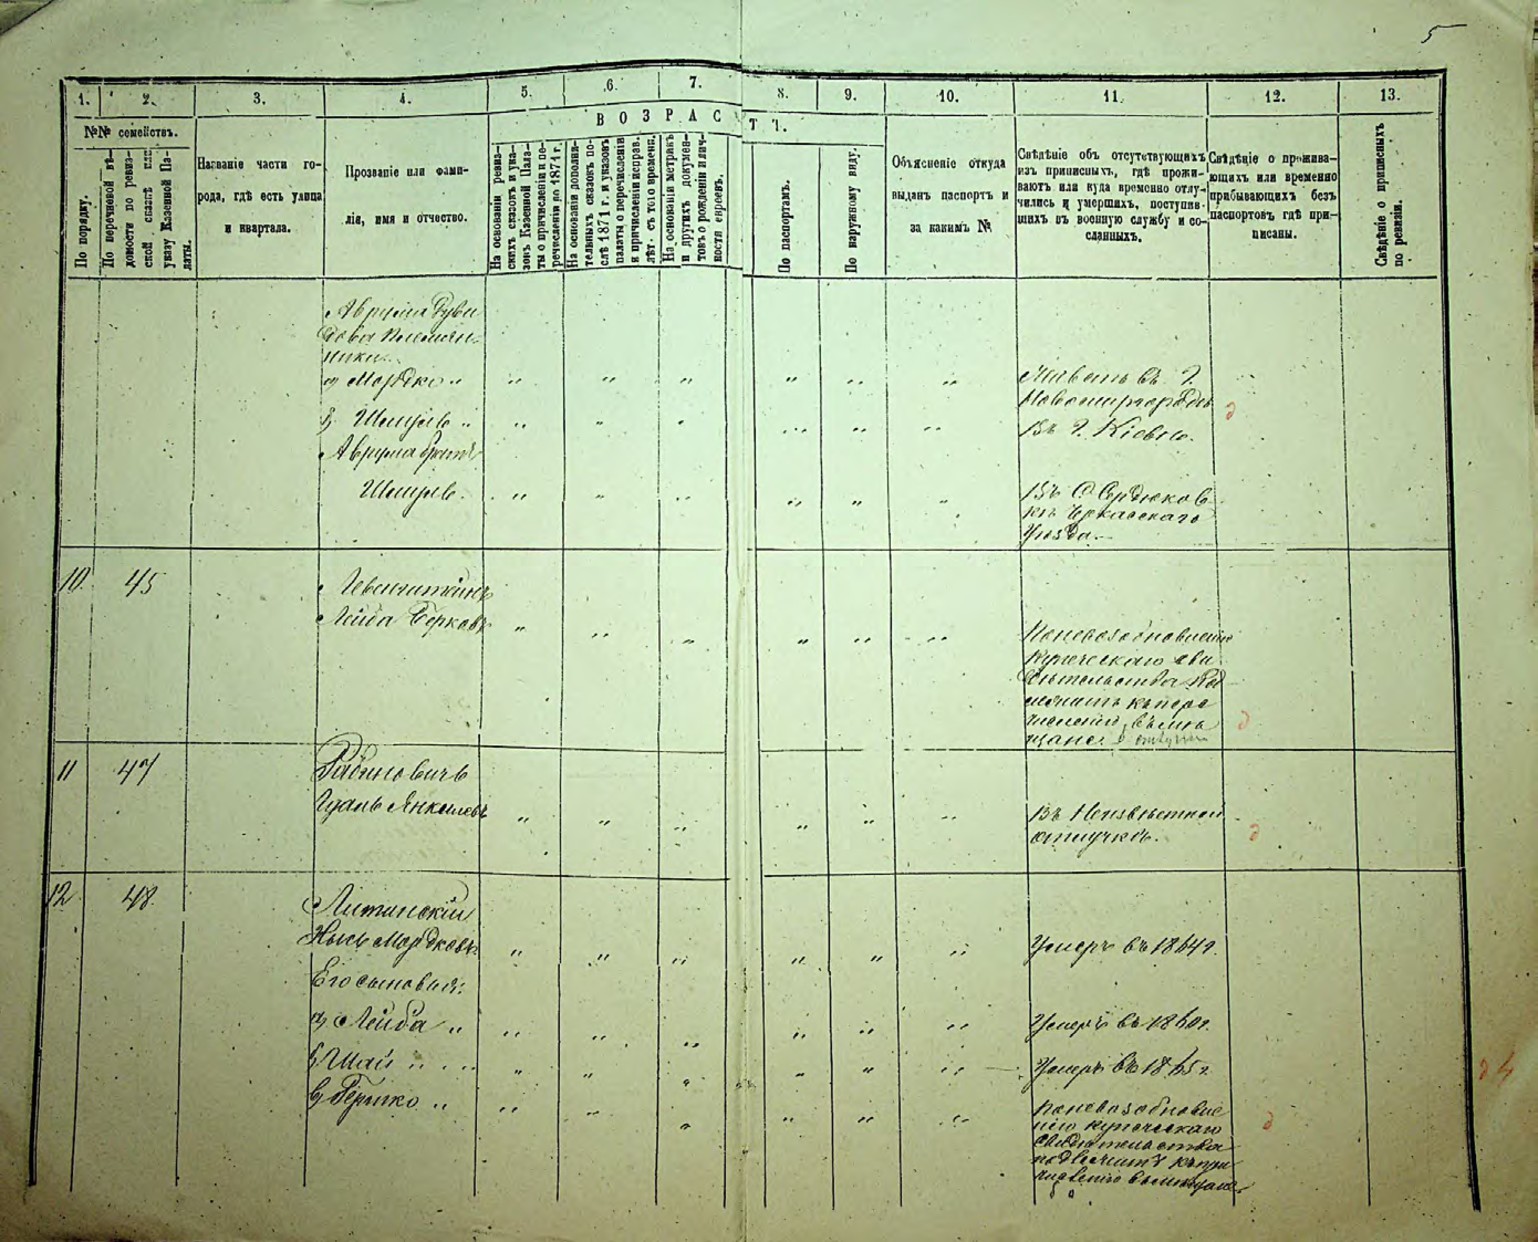 5
1. 2. 3. 4. 5. 6. 7. 8. 9. 10. 11. 12. 13.
№№ семействъ.
По порядку.
По перечневой вѣ-
домости по ревиз-
ской сказкѣ или
указу Казенной Па-
латы.
Названіе части го-
рода, гдѣ есть улица
и квартала.
Прозваніе или фами-
лія, имя и отчество.
ВОЗРАСТЪ.
На основаніи ревиз-
скихъ сказокъ и ука-
зовъ Казенной Пала-
ты о причисленіи и пе-
речисленіи до 1874 г.
На основаніи дополни-
тельныхъ сказокъ по-
слѣ 1874 г. и указовъ
палаты о перечисленіи
и причисленіи исправ.
лѣт. съ того времени.
На основаніи метрикъ
и другихъ докумен-
товъ о рожденіи и лич-
ности евреевъ.
По паспортамъ.
По наружному виду.
Объясненіе откуда
выданъ паспортъ и
за какимъ №
Свѣдѣніе объ отсутствующихъ
изъ приписныхъ, гдѣ прожи-
ваютъ или куда временно отлу-
чились и умершихъ, поступив-
шихъ въ военную службу и со-
сланныхъ.
Свѣдѣніе о прожива-
ющихъ или временно
прибывающихъ безъ
паспортовъ гдѣ при-
писаны.
Свѣдѣніе о приписныхъ
по ревизіи.
Аврума Руви
дова племян-
ники
а) Мордко " " " " " " " Живетъ въ г.
Новомиргородѣ
б) Шмуль " " " " " " " Въ г. Кіевѣ.
Аврума братъ
Шмуль " " " " " " Въ С. Сердюков
кѣ Черкасскаго
Уѣзда.
10. 45
Лейба Берковъ " " " " " " Поневозобновленію
купеческаго сви
дѣтельства под
лежитъ къ пере
численію въ мѣ
щане
11 47 Рабиновичъ
Янкелевъ " " " " " " Въ Неизвѣстной
отлучкѣ.
12 48. Литинскій
Мордковъ " " " " " " Умеръ въ 1864 г.
Его сыновья:
а) Лейба " " " " " " " Умеръ въ 1860 г.
б) Шая " " " " " " " Умеръ въ 1865 г.
в) Гершко " " " " " " " Поневозобновле
нію купеческаго
свидѣтельства
подлежитъ къ при
численію въ мѣщане